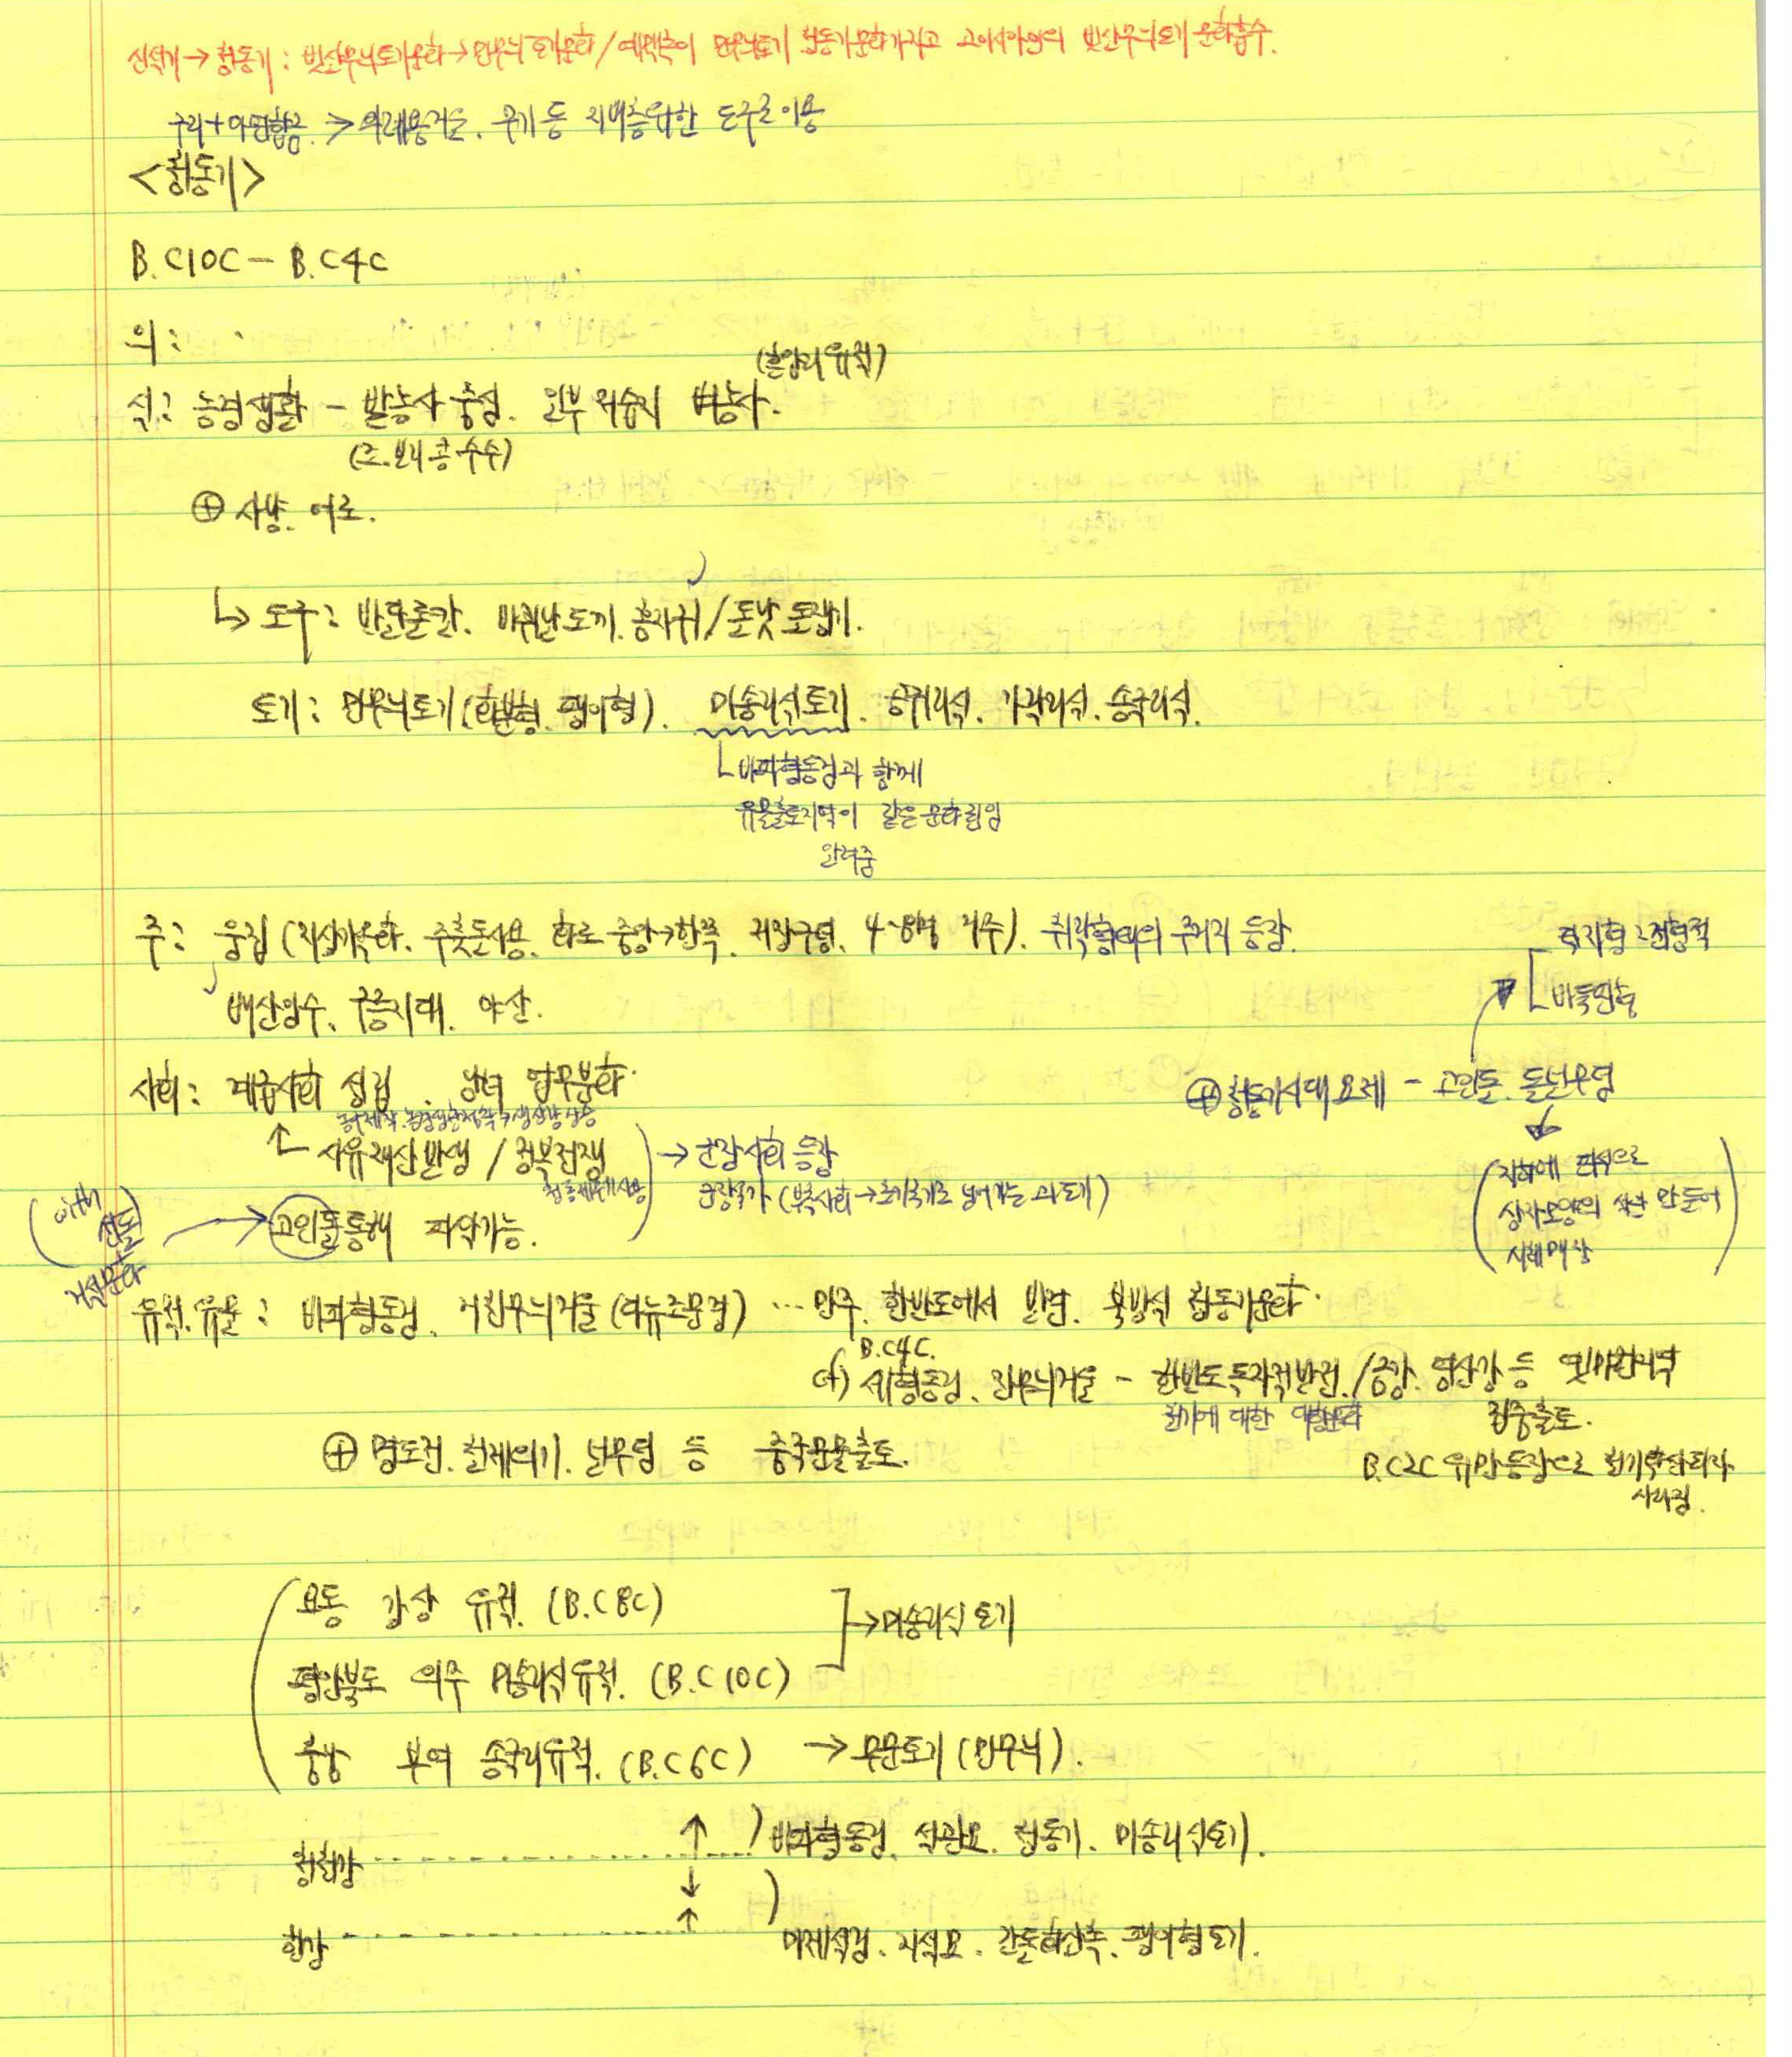 신석기 → 청동기 : 빗살무늬토기문화 → 민무늬토기문화 / 예맥족이 민무늬토기 청동기문화가지고 고아시아인의 빗살무늬토기 문화흡수.
구리+아연합금. > 의례용거울. 무기 등 지배층위한 도구로 이용
<청동기>
B.C10C - B.C4C
의 :
(흔암리유적)
식 : 농경생활 - 밭농사 중심. 일부 저습지 벼농사.
(조.보리.콩.수수)
⊕ 사냥. 어로.
↳ 도구 : 반달돌칼. 바퀴날도끼. 홈자귀/돌낫 돌괭이.
토기 : 민무늬토기 (화분형. 팽이형). 미송리식토기. 공귀리식. 가락리식. 송국리식.
└ 비파형동검과 함께
유물출토지역이 같은 문화권임
알려줌
주 : 움집 (지상가옥화. 주춧돌사용. 화로 중앙→한쪽. 저장구덩. 4~8명 거주). 취락형태의 주거지 등장.
배산임수. 구릉지대. 야산.
탁자형 : 전형적
바둑판식
사회 : 계급사회 성립. 남녀 업무분화.
⊕ 청동기시대 묘제 - 고인돌. 돌널무덤
↑ 사유재산발생 / 정복전쟁
청동제무기사용
→ 군장사회 등장
군장국가 (부족사회 → 초기국가로 넘어가는 과도기)
(지하에 판석으로
상자모양의 석관 만들어
시체매장)
(with 선돌)
거석문화
→ 고인돌통해 파악가능.
유적.유물 : 비파형동검. 거친무늬거울 (다뉴조문경) … 만주. 한반도에서 발견. 북방식 청동기문화.
B.C4C.
cf) 세형동검. 잔무늬거울 - 한반도독자적발전. / 금강. 영산강 등 옛마한지역
철기에 대한 대항문화
집중출토.
⊕ 명도전. 철제의기. 널무덤 등 중국문물출토.
B.C2C 위만등장으로 철기확산되자
사라짐.
요동 강상 유적. (B.C8C)
→ 미송리식 토기
평안북도 의주 미송리식유적. (B.C10C)
충남 부여 송국리유적. (B.C6C) → 무문토기 (민무늬).
↑ ) 비파형동검. 석관묘. 청동기. 미송리식토기.
청천강
↓
↑
한강
마제석검. 지석묘. 간돌화살촉. 팽이형토기.